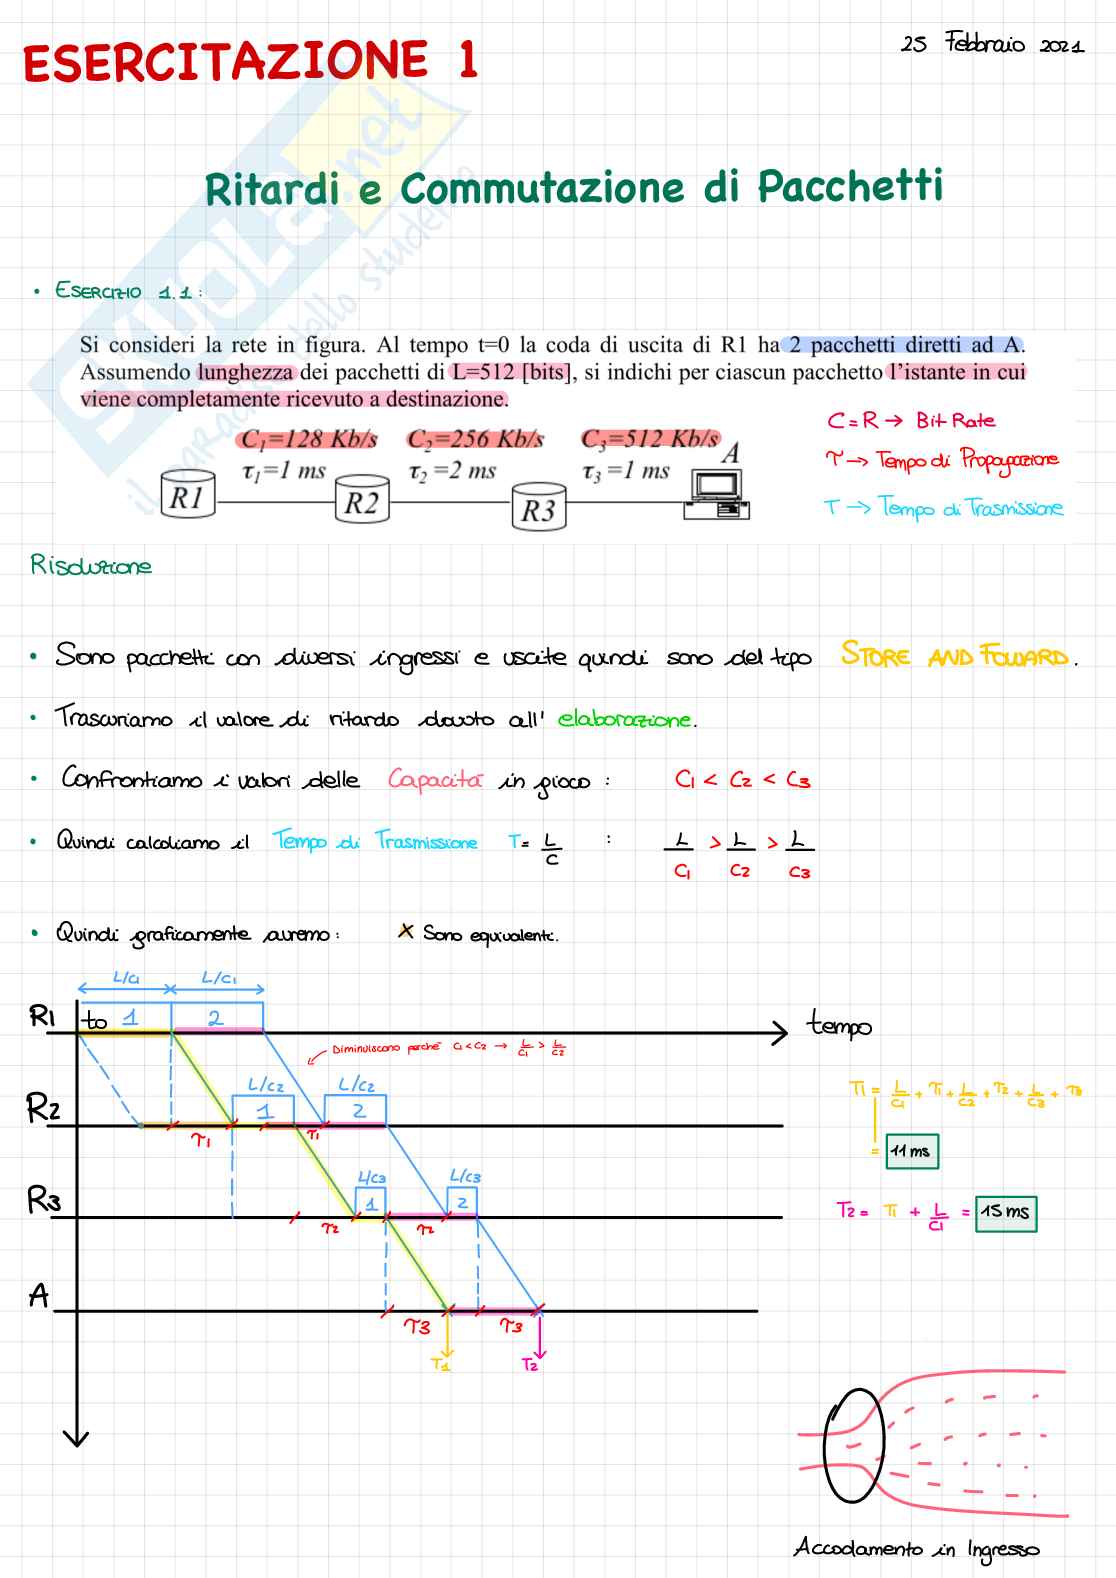 ESERCITAZIONE 1
25 Febbraio 2021
Ritardi e Commutazione di Pacchetti
• ESERCIZIO 1.1:
Si consideri la rete in figura. Al tempo t=0 la coda di uscita di R1 ha 2 pacchetti diretti ad A.
Assumendo lunghezza dei pacchetti di L=512 [bits], si indichi per ciascun pacchetto l'istante in cui
viene completamente ricevuto a destinazione.
C1=128 Kb/s C2=256 Kb/s C3=512 Kb/s A
τ1=1 ms τ2=2 ms τ3=1 ms
R1 R2 R3
C=R → Bit Rate
τ → Tempo di Propagazione
T → Tempo di Trasmissione
Risoluzione
• Sono pacchetti con diversi ingressi e uscite quindi sono del tipo STORE AND FOWARD.
• Trascuriamo il valore di ritardo dovuto all' elaborazione.
• Confrontiamo i valori delle Capacità in gioco : C1 < C2 < C3
• Quindi calcoliamo il Tempo di Trasmissione T = L/C : L/C1 > L/C2 > L/C3
• Quindi graficamente avremo: × Sono equivalenti.
L/C1 L/C1
R1 to 1 2 tempo
Diminuiscono perché C1<C2 → L/C1 > L/C2
L/C2 L/C2
R2 1 2
τ1 τ1
T1 = L/C1 + τ1 + L/C2 + τ2 + L/C3 + τ3
= 11 ms
L/C3 L/C3
R3 1 2
τ2 τ2
T2 = T1 + L/C1 = 15 ms
A
τ3 τ3
T1 T2
Accodamento in Ingresso
SKUOLA.net
il paradiso dello studente